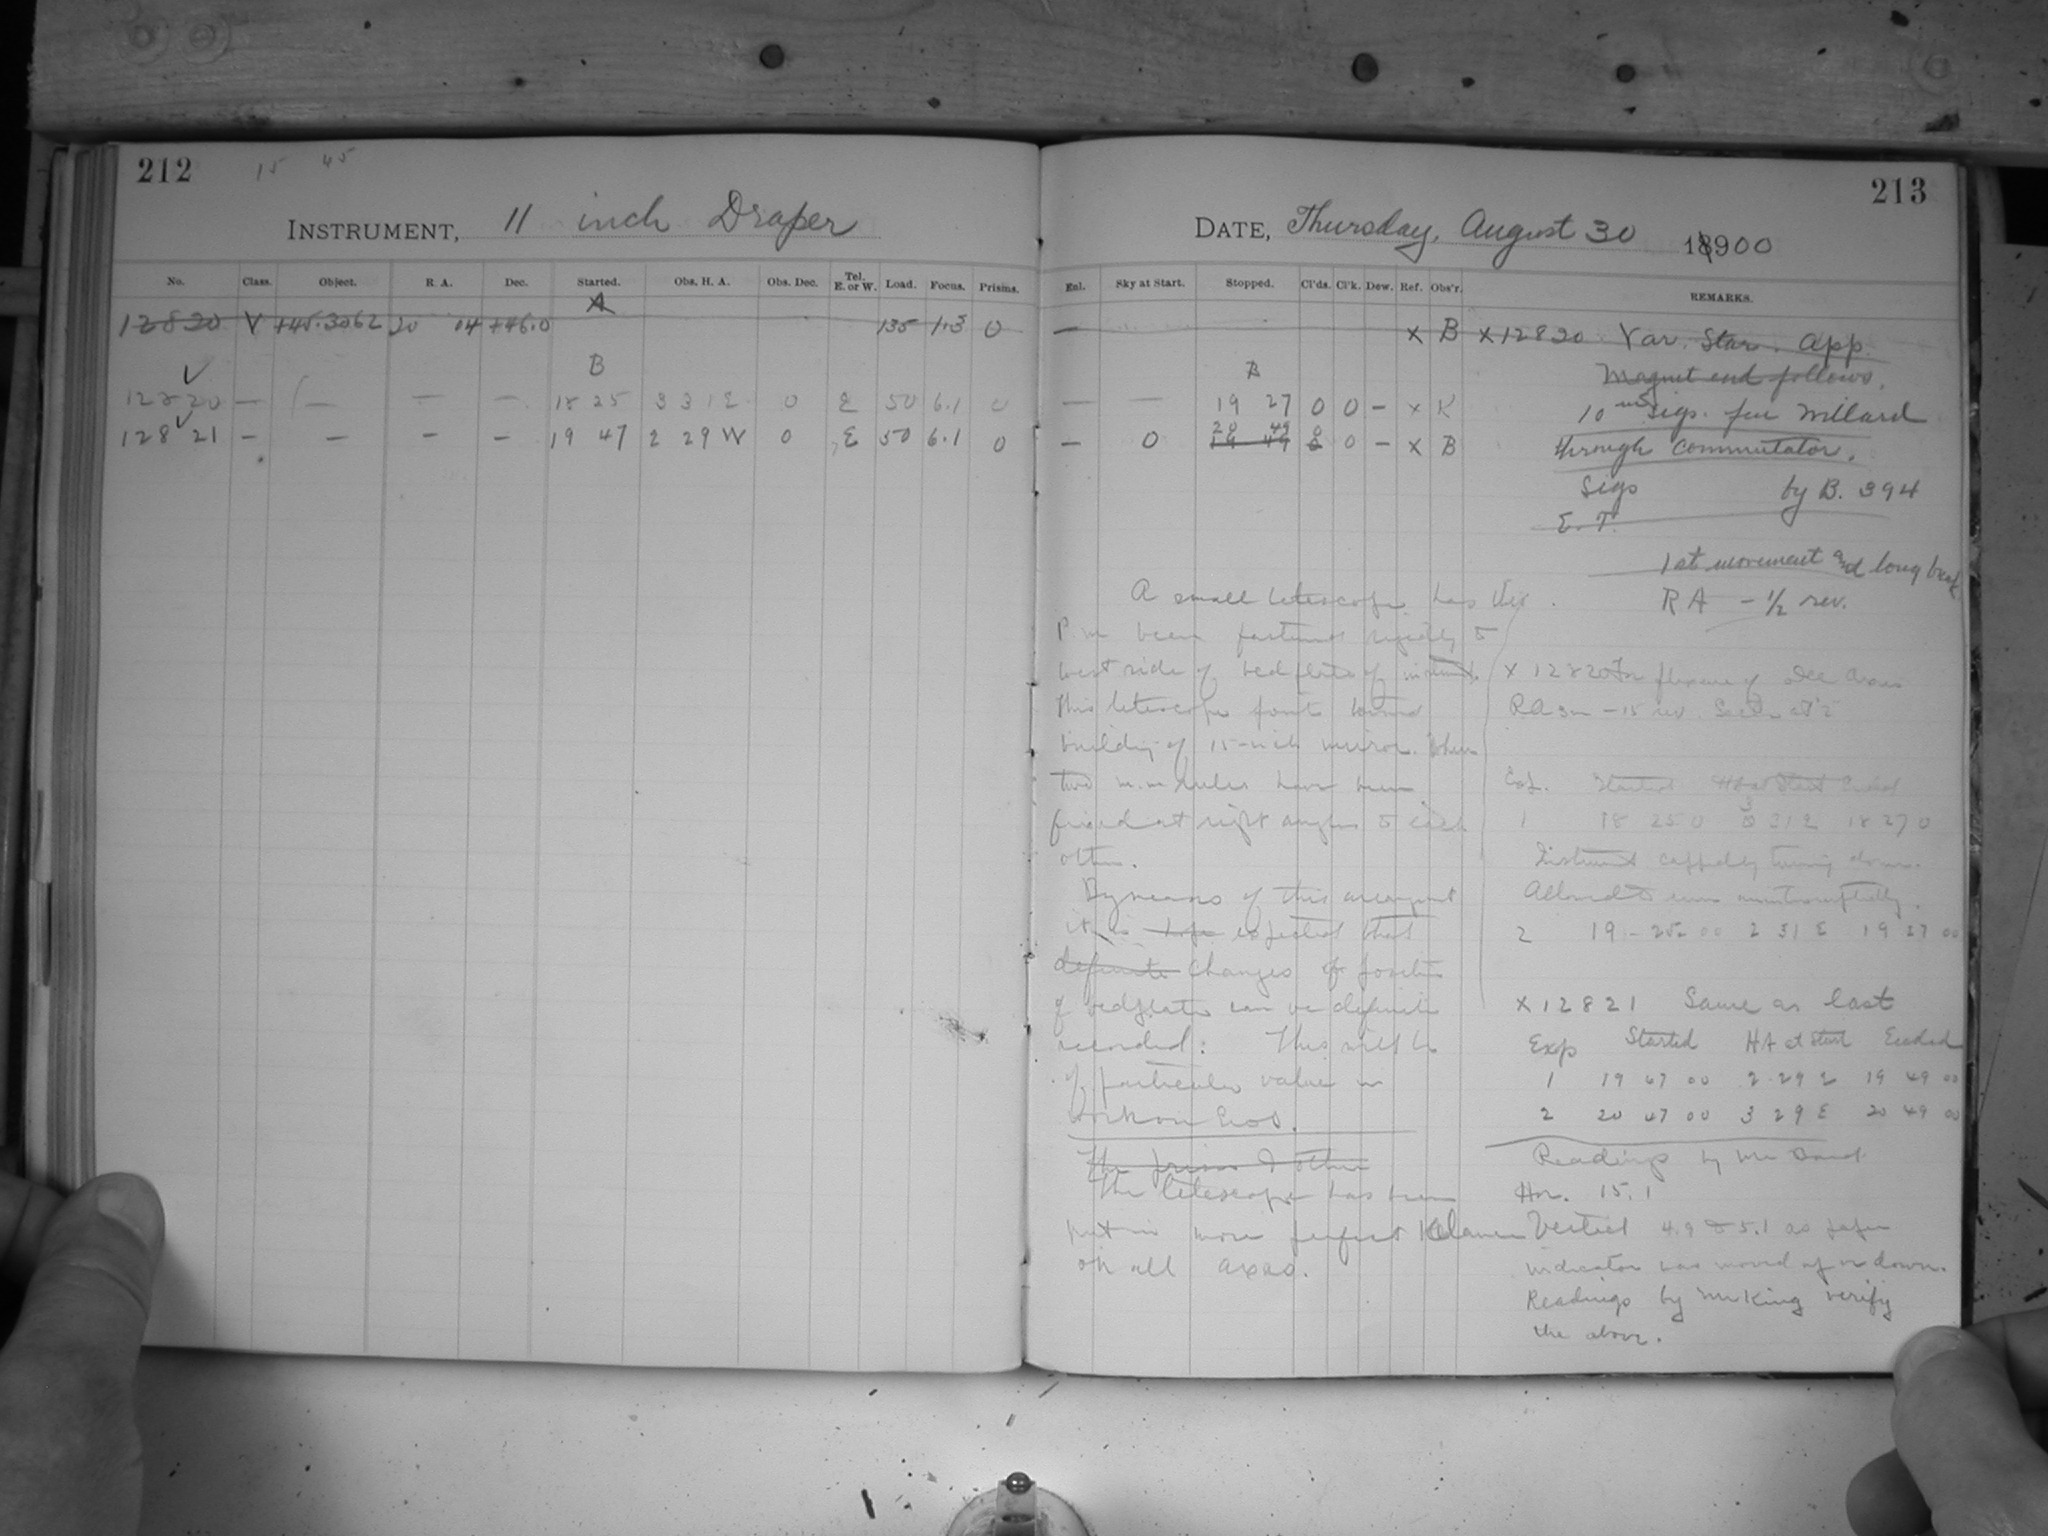 212
15 45
INSTRUMENT, 11 inch Draper
No. Class. Object. R. A. Dec. Started. Obs. H. A. Obs. Dec. Tel. E. or W. Load. Focus. Prisms.
A
12820 V +45.3062 20 04 +46.0 135 1.3 0
B
12820 — — — — 18 25 3 31 E 0 E 50 6.1 0
12821 — — — — 19 47 2 29 W 0 E 50 6.1 0
213
DATE, Thursday, August 30 1900
Enl. Sky at Start. Stopped. Cl'ds. Cl'k. Dew. Ref. Obs'r. REMARKS.
— x B x 12820 Var. Star. App.
Magnet end follows.
B
— — 19 27 0 0 — x K
20 49 0
— 0 19 49 0 — x B
10 m sigs. for Willard
through commutator.
Sigs by B. 394
E. T.
1st movement and long
RA - 1/2 rev.
A small telescope has this
P.m been fastened rigidly to
west side of bed plate of
This telescope points toward
building of 15-inch mirror. Where
two m.m rules have been
fixed at right angles to each
other.
By means of this arrangement
it is hope expected that
definite changes of position
of bedplate can be definitely
recorded: This will be
of particular value in
Work on Eros.
The prism & other
The telescope has been
put in more perfect balance
on all axes.
x 12820 For flexure of dec axis
RA 3m - 15 rev.
Exp. Started HA at Start Ended
1 18 25 0 3 31 E 18 27 0
Instrument capped by turning down.
2 19 - 25 00 2 31 E 19 27 00
x 12821 Same as last
Exp Started HA at Start Ended
1 19 47 00 2 29 E 19 49 00
2 20 47 00 3 29 E 20 49 00
Readings by Mr
Hor. 15.1
Vertical 4.9 to 5.1 as paper
indicator was moved up or down.
Readings by Mr King verify
the above.